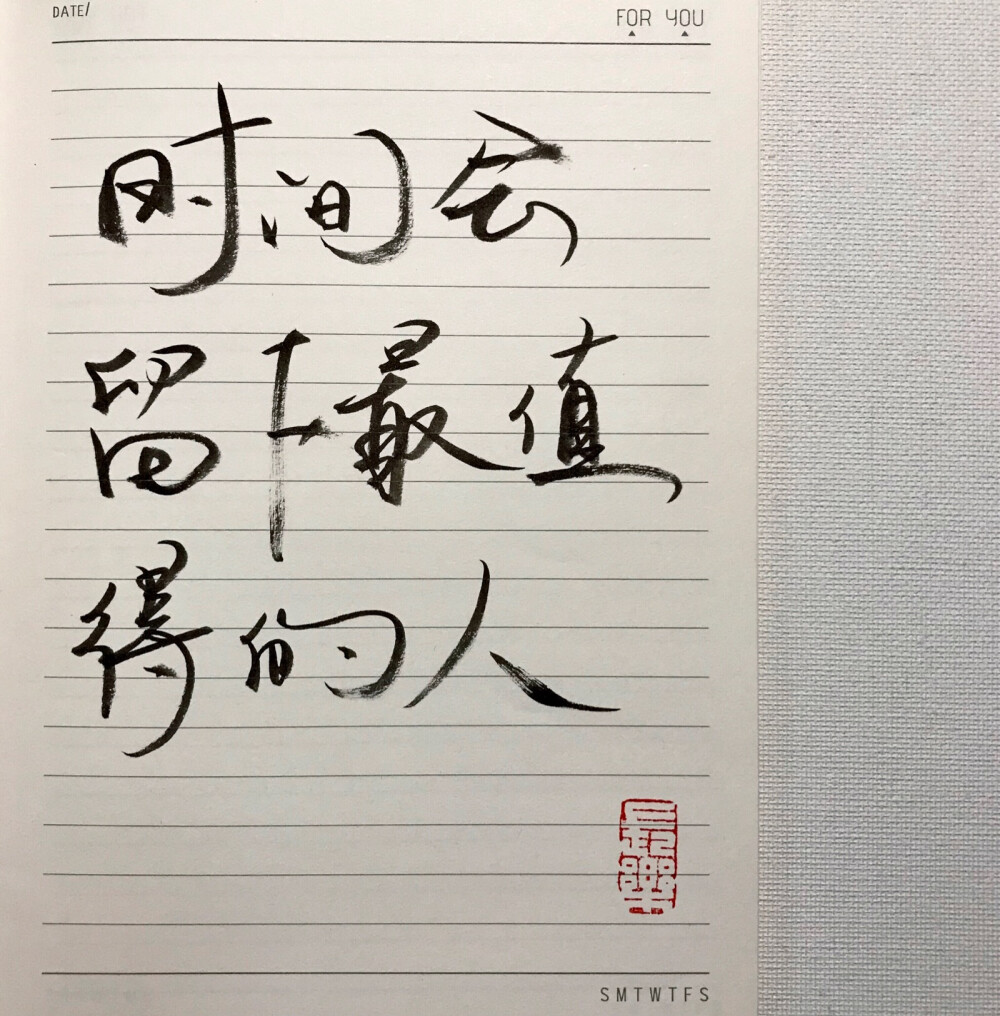 DATE/
FOR YOU
时间会
留下最值
得的人
S M T W T F S